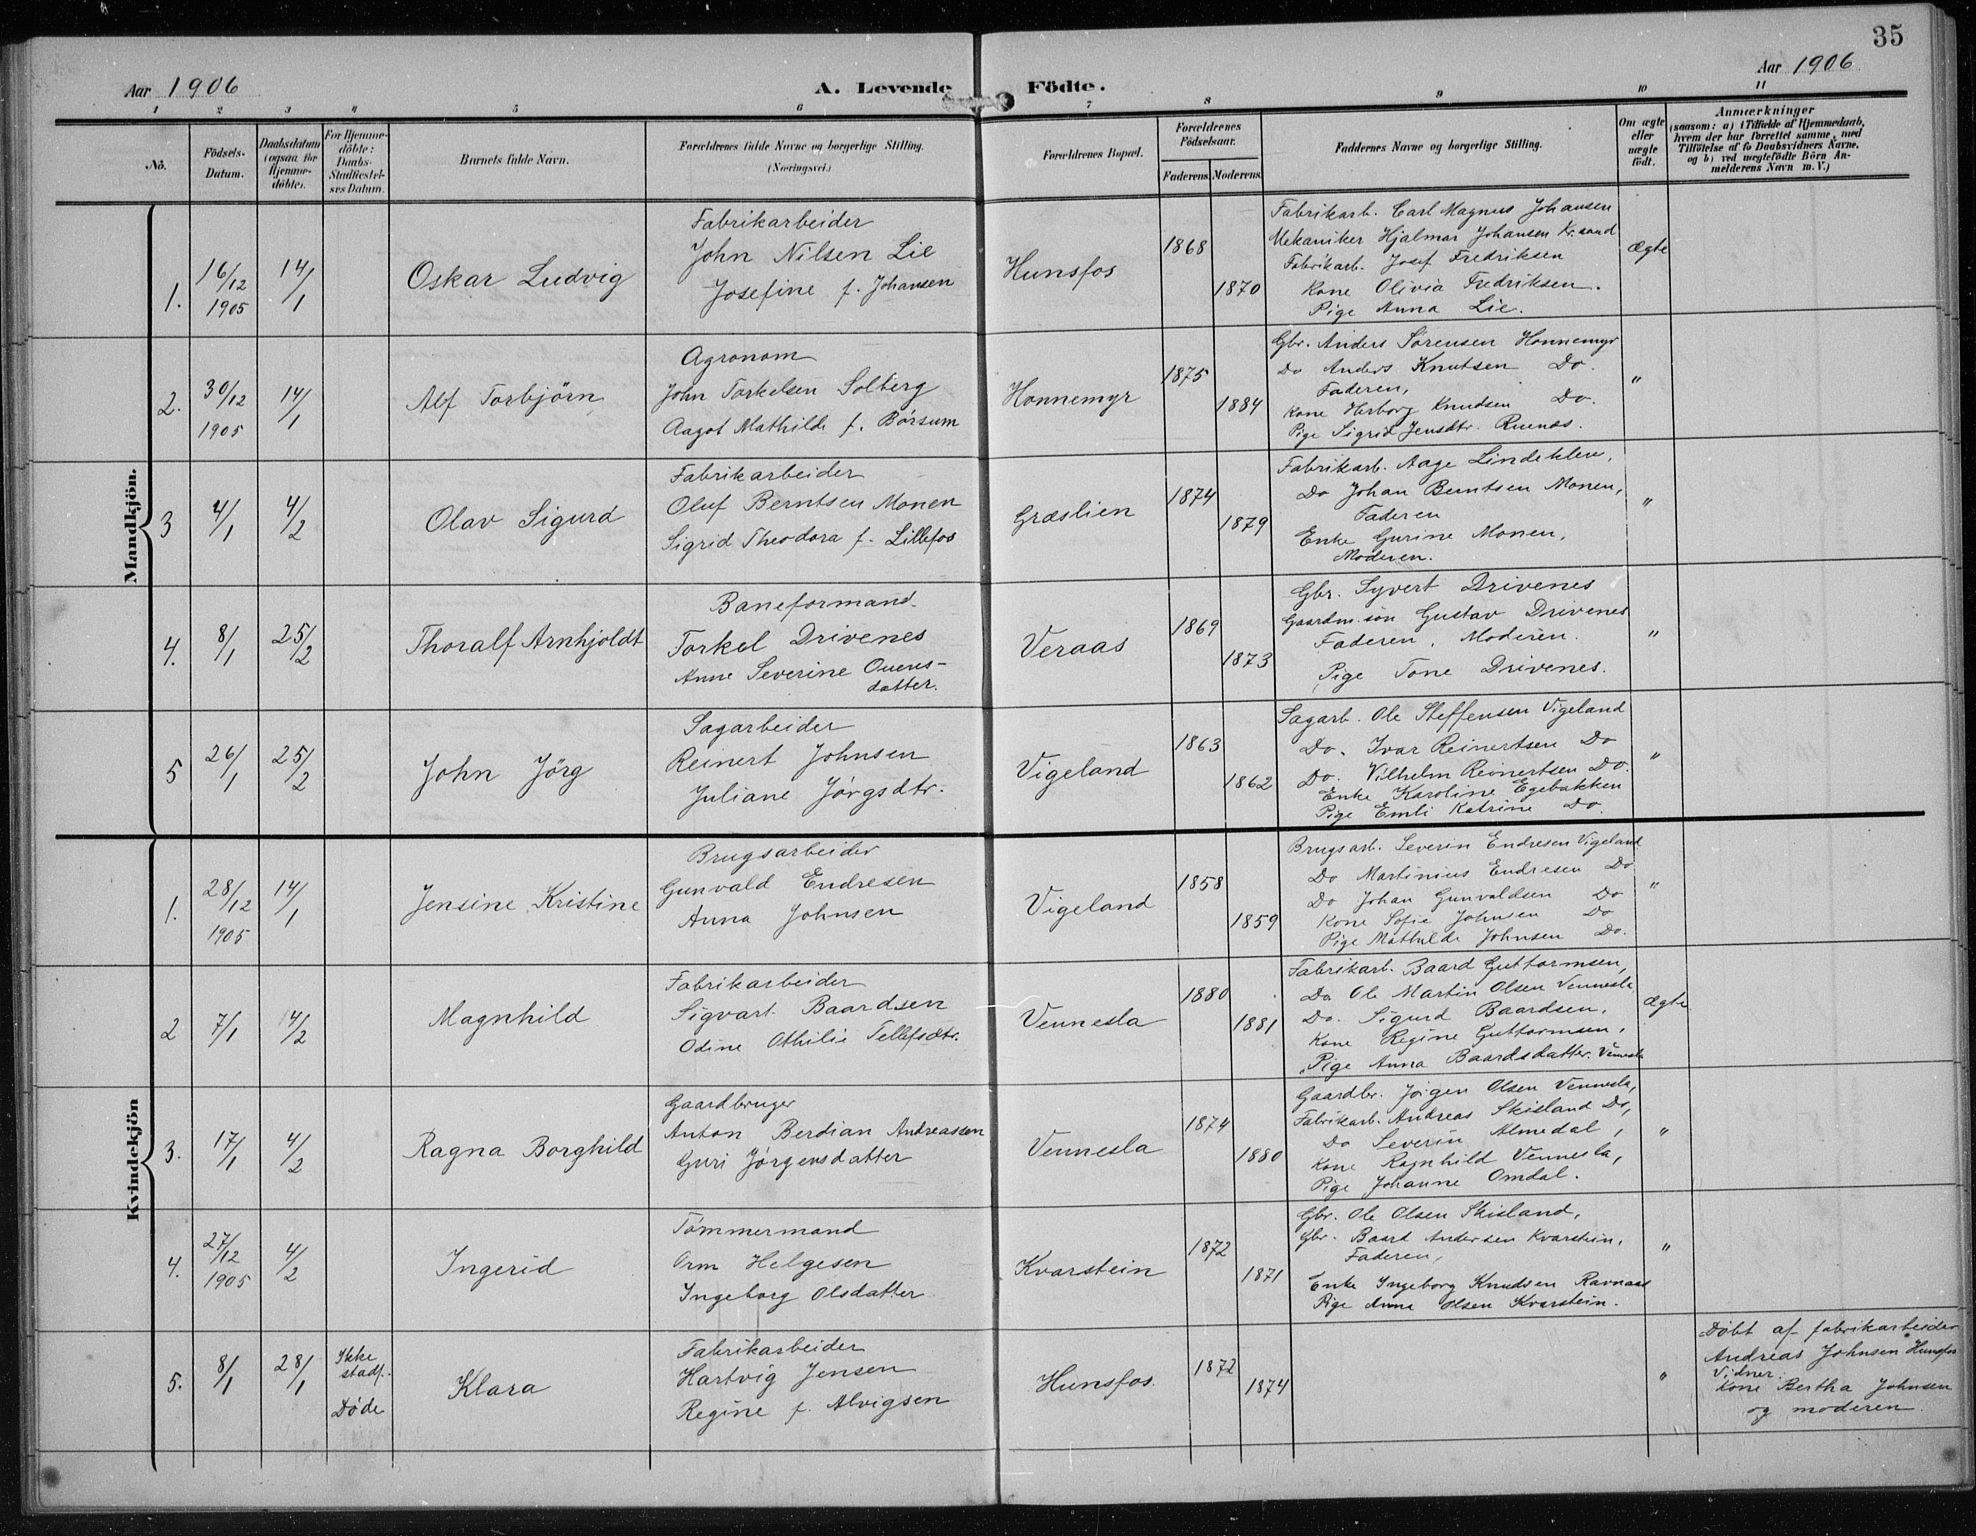 35
Aar 1906
A. Levende Födte.
Aar 1906
1 2 3 4 5 6 7 8 9 10 11
No.
Födsels-
Datum.
Daabsdatum
(ogsaa for
Hjemme-
döbte).
For Hjemme-
döbte:
Daabs-
Stadfæstel-
ses Datum.
Barnets fulde Navn.
Forældrenes fulde Navne og borgerlige Stilling.
(Næringsvei.)
Forældrenes Bopæl.
Forældrenes
Födselsaar.
Faderens. Moderens.
Faddernes Navne og borgerlige Stilling.
Om ægte
eller
uægte
födt.
Anmærkninger
(saasom: a) i Tilfælde af Hjemmedaab,
hvem der har forrettet samme, med
Tilföielse af to Daabsvidners Navne,
og b) ved uægtefödte Börn An-
melderens Navn m.V.)
Mandkjön.
1.
16/12
1905
14/1
Oskar Ludvig
Fabrikarbeider
John Nilsen Lie
Josefine f. Johansen
Hunsfos
1868
1870
Fabrikarb. Carl Magnus Johansen
Mekaniker Hjalmar Johansen Kr.sand
Fabrikarb. Josef Fredriksen
Kone Olivia Fredriksen.
Pige Anna Lie.
Ægte
2.
30/12
1905
14/1
Alf Torbjörn
Agronom
John Torkelsen Solberg
Aagot Mathilde f. Börsum
Honnemyr
1875
1884
Gbr. Anders Sörensen Honnemyr
Do Anders Knutsen Do.
Faderen,
Kone Herborg Knudsen Do.
Pige Sigrid Jensdtr. Ruenæs.
"
3
4/1
4/2
Olav Sigurd
Fabrikarbeider
Oluf Berntsen Monen
Sigrid Theodora f. Lillefos
Græslien
1874
1879
Fabrikarb. Aage Lindekleiv,
Do Johan Berntsen Monen,
Faderen
Enke Gurine Monen,
Moderen.
"
4.
8/1
25/2
Thoralf Arnhjoldt
Baneformand.
Torkel Drivenes
Anne Severine Ouens-
datter.
Veraas
1869
1873
Gbr. Syvert Drivenes
Gaardm.sön Gustav Drivenes
Faderen, Moderen.
Pige Tone Drivenes.
"
5
26/1
25/2
John Jörg
Sagarbeider
Reinert Johnsen
Juliane Jörgsdtr.
Vigeland
1863
1862
Sagarb. Ole Steffensen Vigeland
Do. Ivar Reinertsen Do
Do. Vilhelm Reinertsen Do.
Enke Karoline Egebakken
Pige Emli Katrine Do.
"
Kvindekjön
1.
28/12
1905
14/1
Jensine Kristine
Brugsarbeider
Gunvald Endresen
Anna Johnsen
Vigeland
1858
1859
Brugsarb. Severin Endresen Vigeland
Do Martinius Endresen Do
Do Johan Gunvaldsen Do
Kone Sofie Johnsen Do
Pige Mathilde Johnsen Do.
"
2
7/1
4/2
Magnhild
Fabrikarbeider
Sigvart Baardsen
Odine Othilie Tellefsdtr.
Vennesla
1880
1881
Fabrikarb. Baard Guttormsen,
Do Ole Martin Olsen Vennesla
Do. Sigurd Baardsen,
Kone Regine Guttormsen,
Pige Anna Baardsdatter. Vennesla
Ægte
3.
17/1
4/2
Ragna Borghild
Gaardbruger
Anton Berdian Andreassen
Guri Jörgensdatter
Vennesla
1874
1880
Gaardbr. Jörgen Olsen Vennesla,
Fabrikarb. Andreas Skisland Do,
Do Severin Almedal,
Kone Ragnhild Vennesla,
Pige Johanne Omdal.
"
4.
27/12
1905
4/2
Ingerid
Tömmermand
Orm Helgesen
Ingeborg Olsdatter
Kvarstein
1872
1871
Gbr. Ole Olsen Skisland,
Gbr. Baard Andersen Kvarstein,
Faderen,
Enke Ingeborg Knudsen Ravnaas
Pige Anna Olsen Kvarstein.
"
5.
8/1
28/1
Ikke
stadf.
Döde
Klara
Fabrikarbeider
Hartvig Jensen
Regine f. Alvigsen
Hunsfos
1872
1874
"
Döbt af fabrikarbeider
Andreas Johnsen Hunsfos
Vidner:
Kone Bertha Johnsen
og moderen.